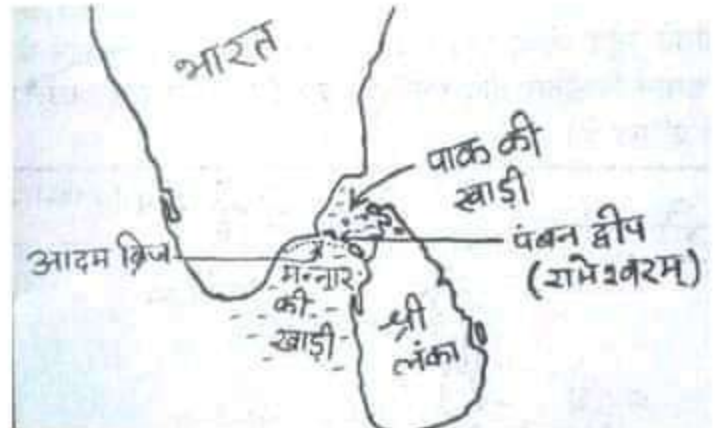 भारत
पाक की
खाड़ी
पंबन द्वीप
(रामेश्वरम्)
आदम ब्रिज
मन्नार
की
खाड़ी
श्री
लंका